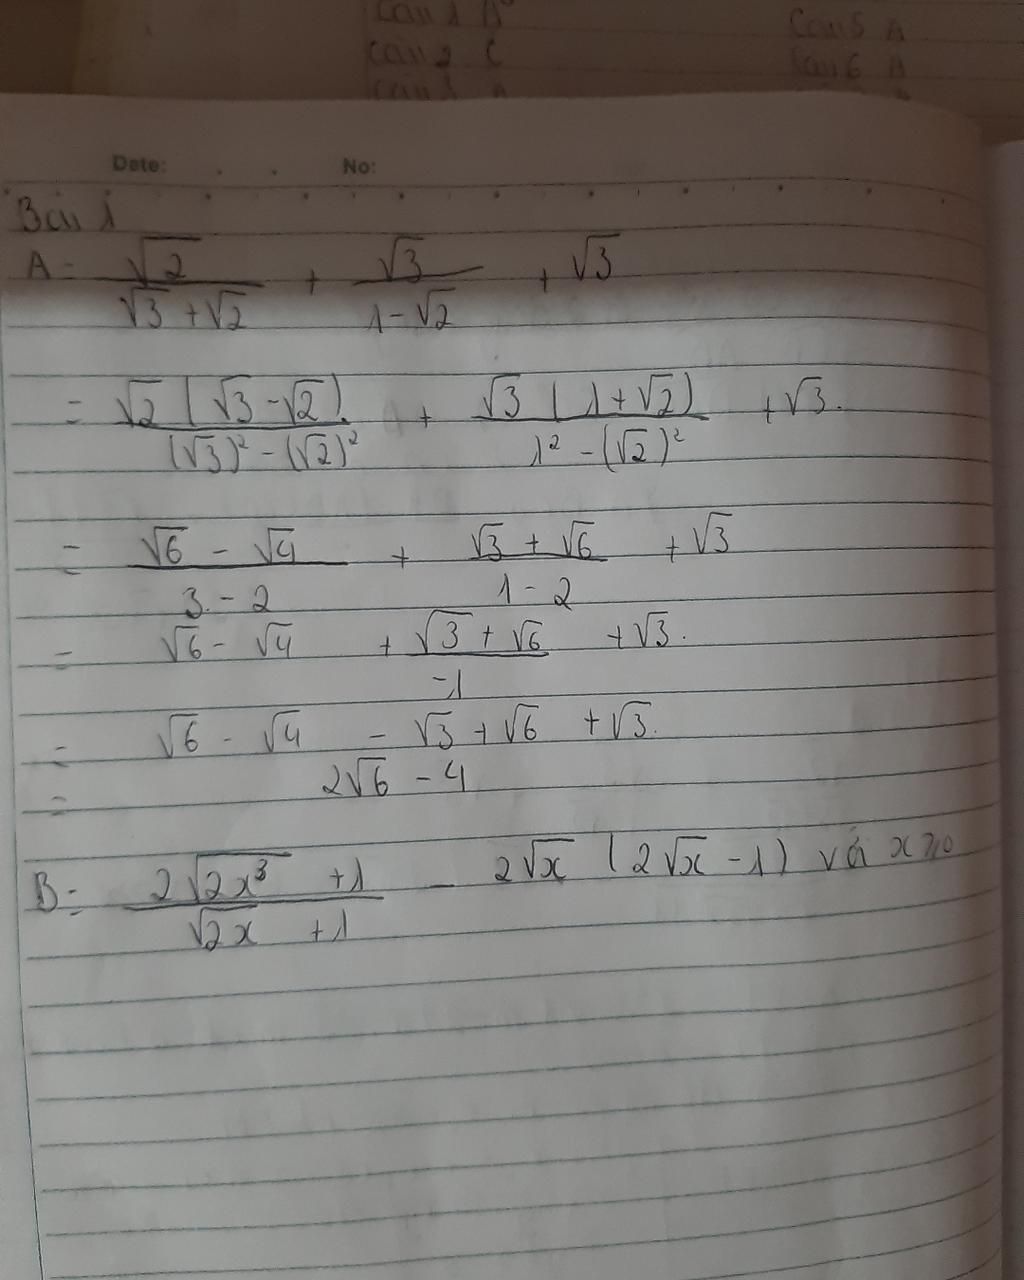 Câu 1 A
Câu 5 A
Câu 2 C
Câu 6 A
Date: No:
Bài 1
A = √2 / (√3 + √2) + √3 / (1 - √2) + √3
= √2 (√3 - √2) / ((√3)² - (√2)²) + √3 (1 + √2) / (1² - (√2)²) + √3.
= (√6 - √4) / (3 - 2) + (√3 + √6) / (1 - 2) + √3
= √6 - √4 + (√3 + √6) / -1 + √3.
= √6 - √4 - √3 + √6 + √3.
= 2√6 - 4
B = (2√2x³ + 1) / (√2x + 1) - 2√x (2√x - 1) với x ≥ 0